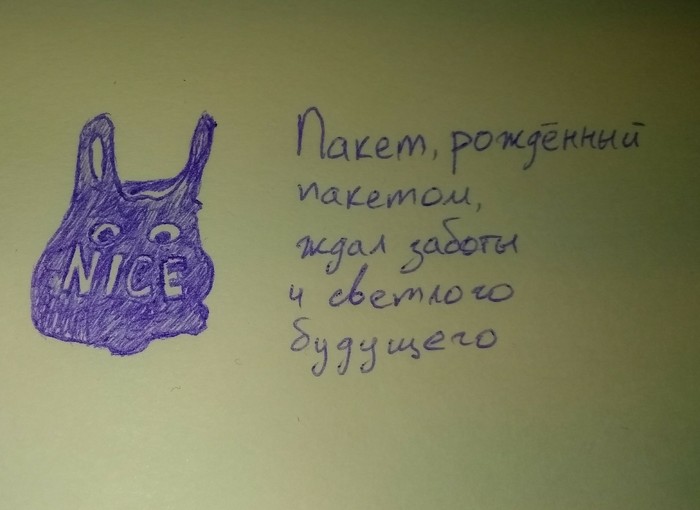 NICE
Пакет, рождённый
пакетом,
ждал заботы
и светлого
будущего